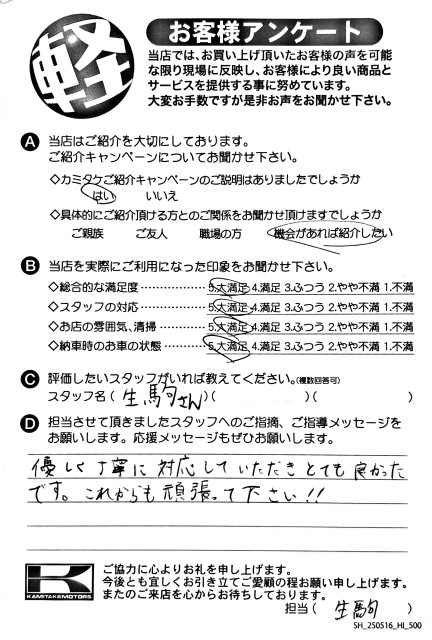 軽
お客様アンケート
当店では、お買い上げ頂いたお客様の声を可能
な限り現場に反映し、お客様により良い商品と
サービスを提供する事に努めています。
大変お手数ですが是非お声をお聞かせ下さい。
A 当店はご紹介を大切にしております。
ご紹介キャンペーンについてお聞かせ下さい。
◇カミタケご紹介キャンペーンのご説明はありましたでしょうか
はい いいえ
◇具体的にご紹介頂ける方とのご関係をお聞かせ頂けますでしょうか
ご親族 ご友人 職場の方 機会があれば紹介したい
B 当店を実際にご利用になった印象をお聞かせ下さい。
◇総合的な満足度 ･････････････ 5.大満足 4.満足 3.ふつう 2.やや不満 1.不満
◇スタッフの対応 ･････････････ 5.大満足 4.満足 3.ふつう 2.やや不満 1.不満
◇お店の雰囲気、清掃 ･･････････ 5.大満足 4.満足 3.ふつう 2.やや不満 1.不満
◇納車時のお車の状態 ･･････････ 5.大満足 4.満足 3.ふつう 2.やや不満 1.不満
C 評価したいスタッフがいれば教えてください。(複数回答可)
スタッフ名 ( 生駒さん )( )( )
D 担当させて頂きましたスタッフへのご指摘、ご指導メッセージを
お願いします。応援メッセージもぜひお願いします。
優しく丁寧に対応していただきとても良かった
です。これからも頑張って下さい!!
KAMITAKE MOTORS
ご協力に心よりお礼を申し上げます。
今後とも宜しくお引き立てご愛顧の程お願い申し上げます。
またのご来店を心からお待ちしております。
担当 ( 生駒 )
SH_250516_HI_500